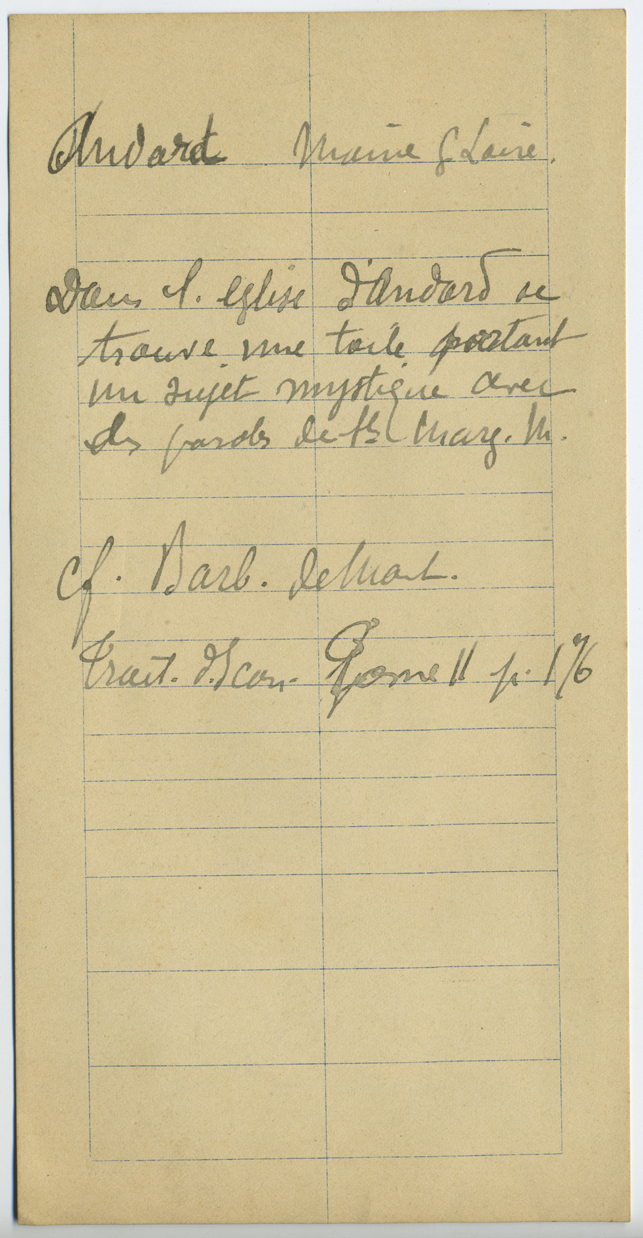 Andard Maine & Loire.
Dans l. eglise d'Andard se
trouve une toile portant
un sujet mystique avec
des paroles de Marg. M.
cf. Barb. de Mont.
Trait. d'Icon. Tome II p. 176